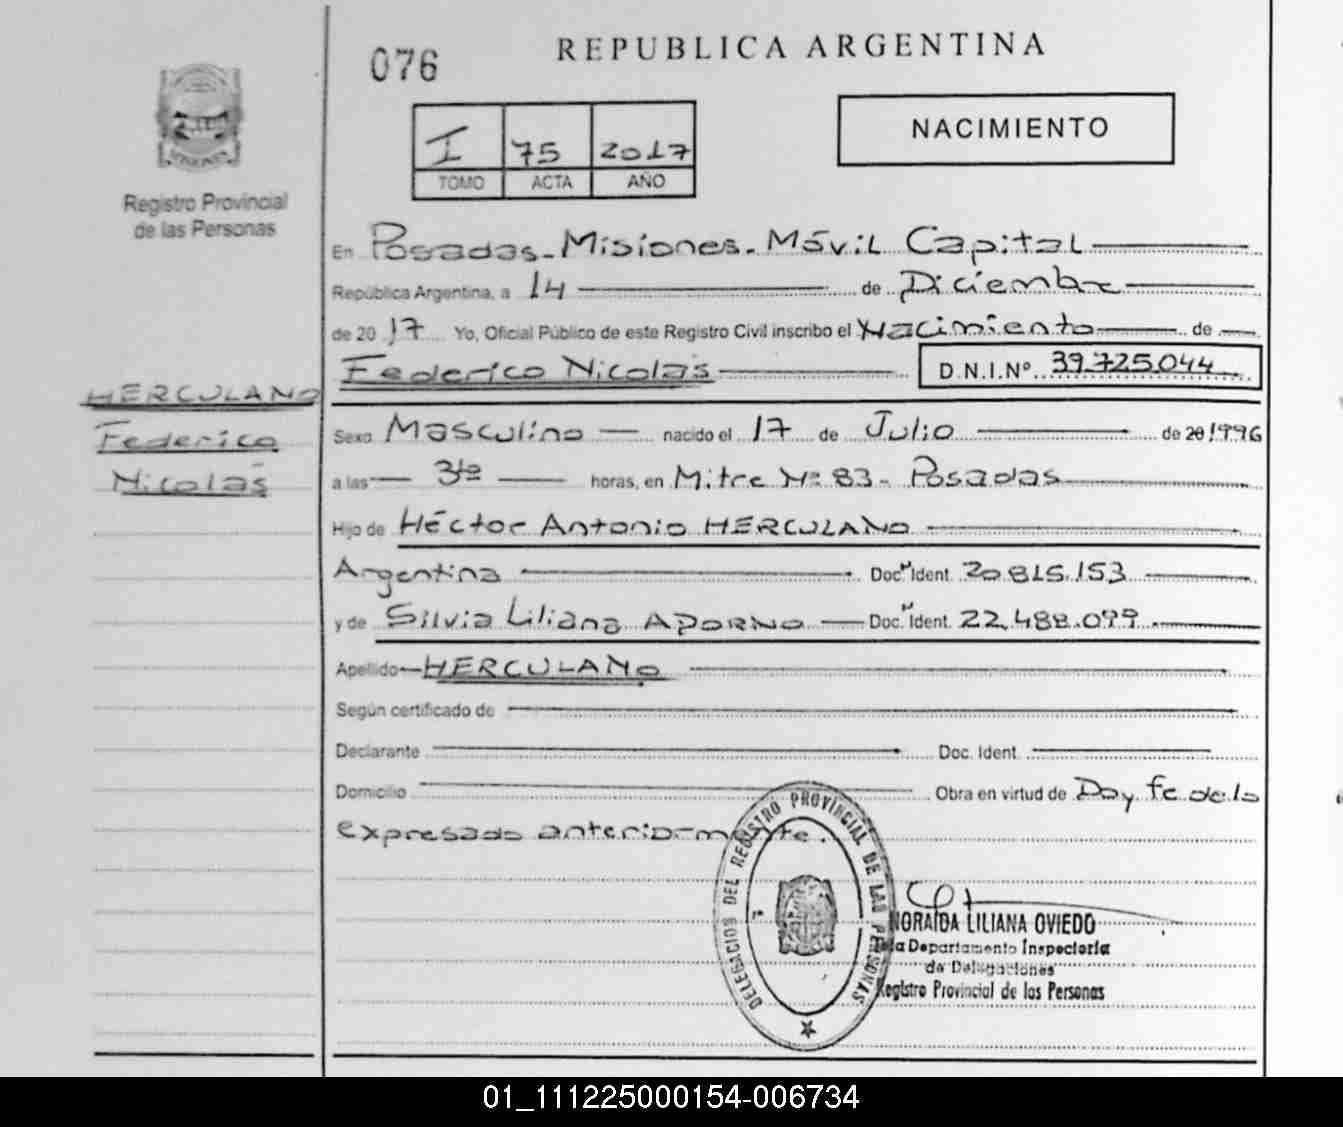 076
REPUBLICA ARGENTINA
I 75 2017
TOMO ACTA AÑO
NACIMIENTO
Registro Provincial
de las Personas
En Posadas - Misiones - Móvil Capital
República Argentina, a 14 de Diciembre
de 2017 Yo, Oficial Público de este Registro Civil inscribo el Nacimiento de
Federico Nicolás D.N.I.Nº 39.725.044
HERCULANO
Federico
Nicolás
Sexo Masculino nacido el 17 de Julio de 20 1996
a las 3 horas, en Mitre Nº 83 - Posadas
Hijo de Héctor Antonio HERCULANO
Argentina Doc. Ident. 20.815.153
y de Silvia Liliana APORNO Doc. Ident. 22.488.099
Apellido HERCULANO
Según certificado de
Declarante Doc. Ident.
Domicilio Obra en virtud de Doy fe de lo
expresado anteriormente.
DELEGACION DEL REGISTRO PROVINCIAL DE LAS PERSONAS
NORAIDA LILIANA OVIEDO
Departamento Inspectoría
de Delegaciones
Registro Provincial de las Personas
01_111225000154-006734